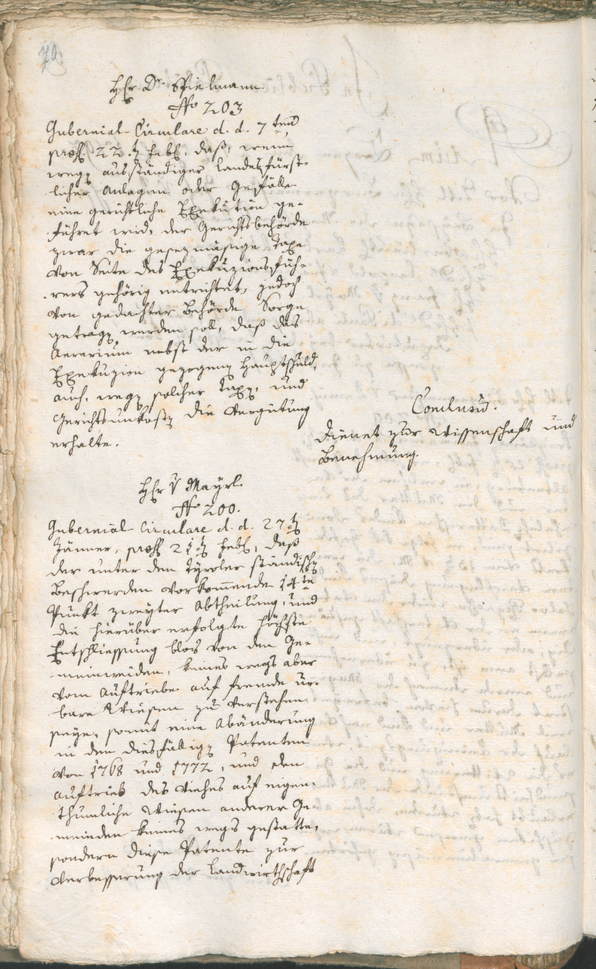 70.
H: Dr. Spielmann.
No 203
Gubernial Circulare d. d. 7ten
pres. 22t. Febr., daß, wenn
wegen ausständiger Landesfürst-
licher Anlagen oder Gefälle
eine gerichtliche Exekution ge-
führet wird, der Gerichtsbehörde
zwar die gesezmäsige Taxe
von Seite des Exekuzionsfüh-
rers gehörig entrichtet, jedoch
von gedachter Behörde Sorge
getragen werden soll, daß das
Aerarium nebst der in die
Exekuzion gezogenen Hauptschuld,
auch wegen solcher Taxen, und
Gerichtsunkosten die Vergütung
erhalte.
Conclusum.
Dienet zur Wissenschaft und
Benehmung.
H: v Mayrl.
No 200.
Gubernial Circulare d. d. 27t.
Jänner, pres. 21t. Febr., daß
der unter den Tyroler ständischen
Beschwerden vorkommende 14te
Punkt zweyter Abtheilung, und
die hierüber erfolgte höchste
Entschliessung blos von den Ge-
meinweiden, keines wegs aber
vom Auftriebe auf fremde ur-
bare Wiesen zu verstehen
seye, somit eine Abänderung
in den diesfälligen Patenten
von 1768 und 1772, und den
Auftrieb des Viehes auf eigen-
thumliche Wiesen anderer Ge-
meinden keines wegs gestatte,
sondern diese Patente zur
Verbesserung der Landwirthschaft